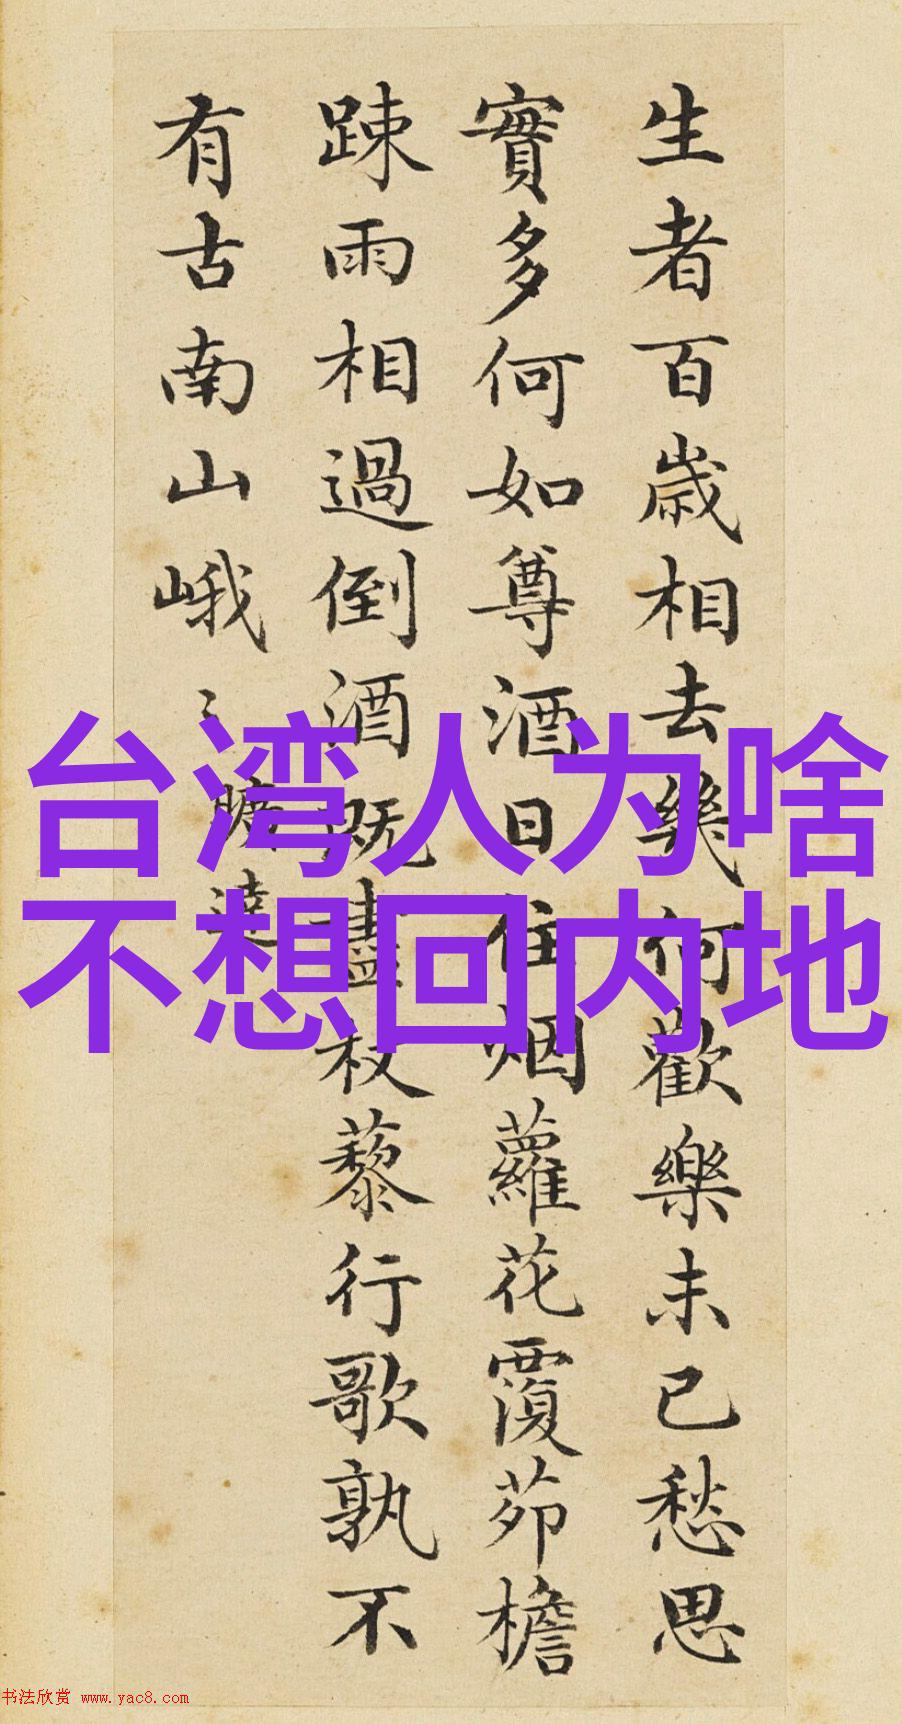 生者百歲相去幾何歡樂未已愁思
實多何如尊酒日往烟蘿花覆茆檐
踈雨相過倒酒既盡杖藜行歌孰不
有古南山峨〻曠達
台湾人为啥
不想回内地
书法欣赏 www.yac8.com